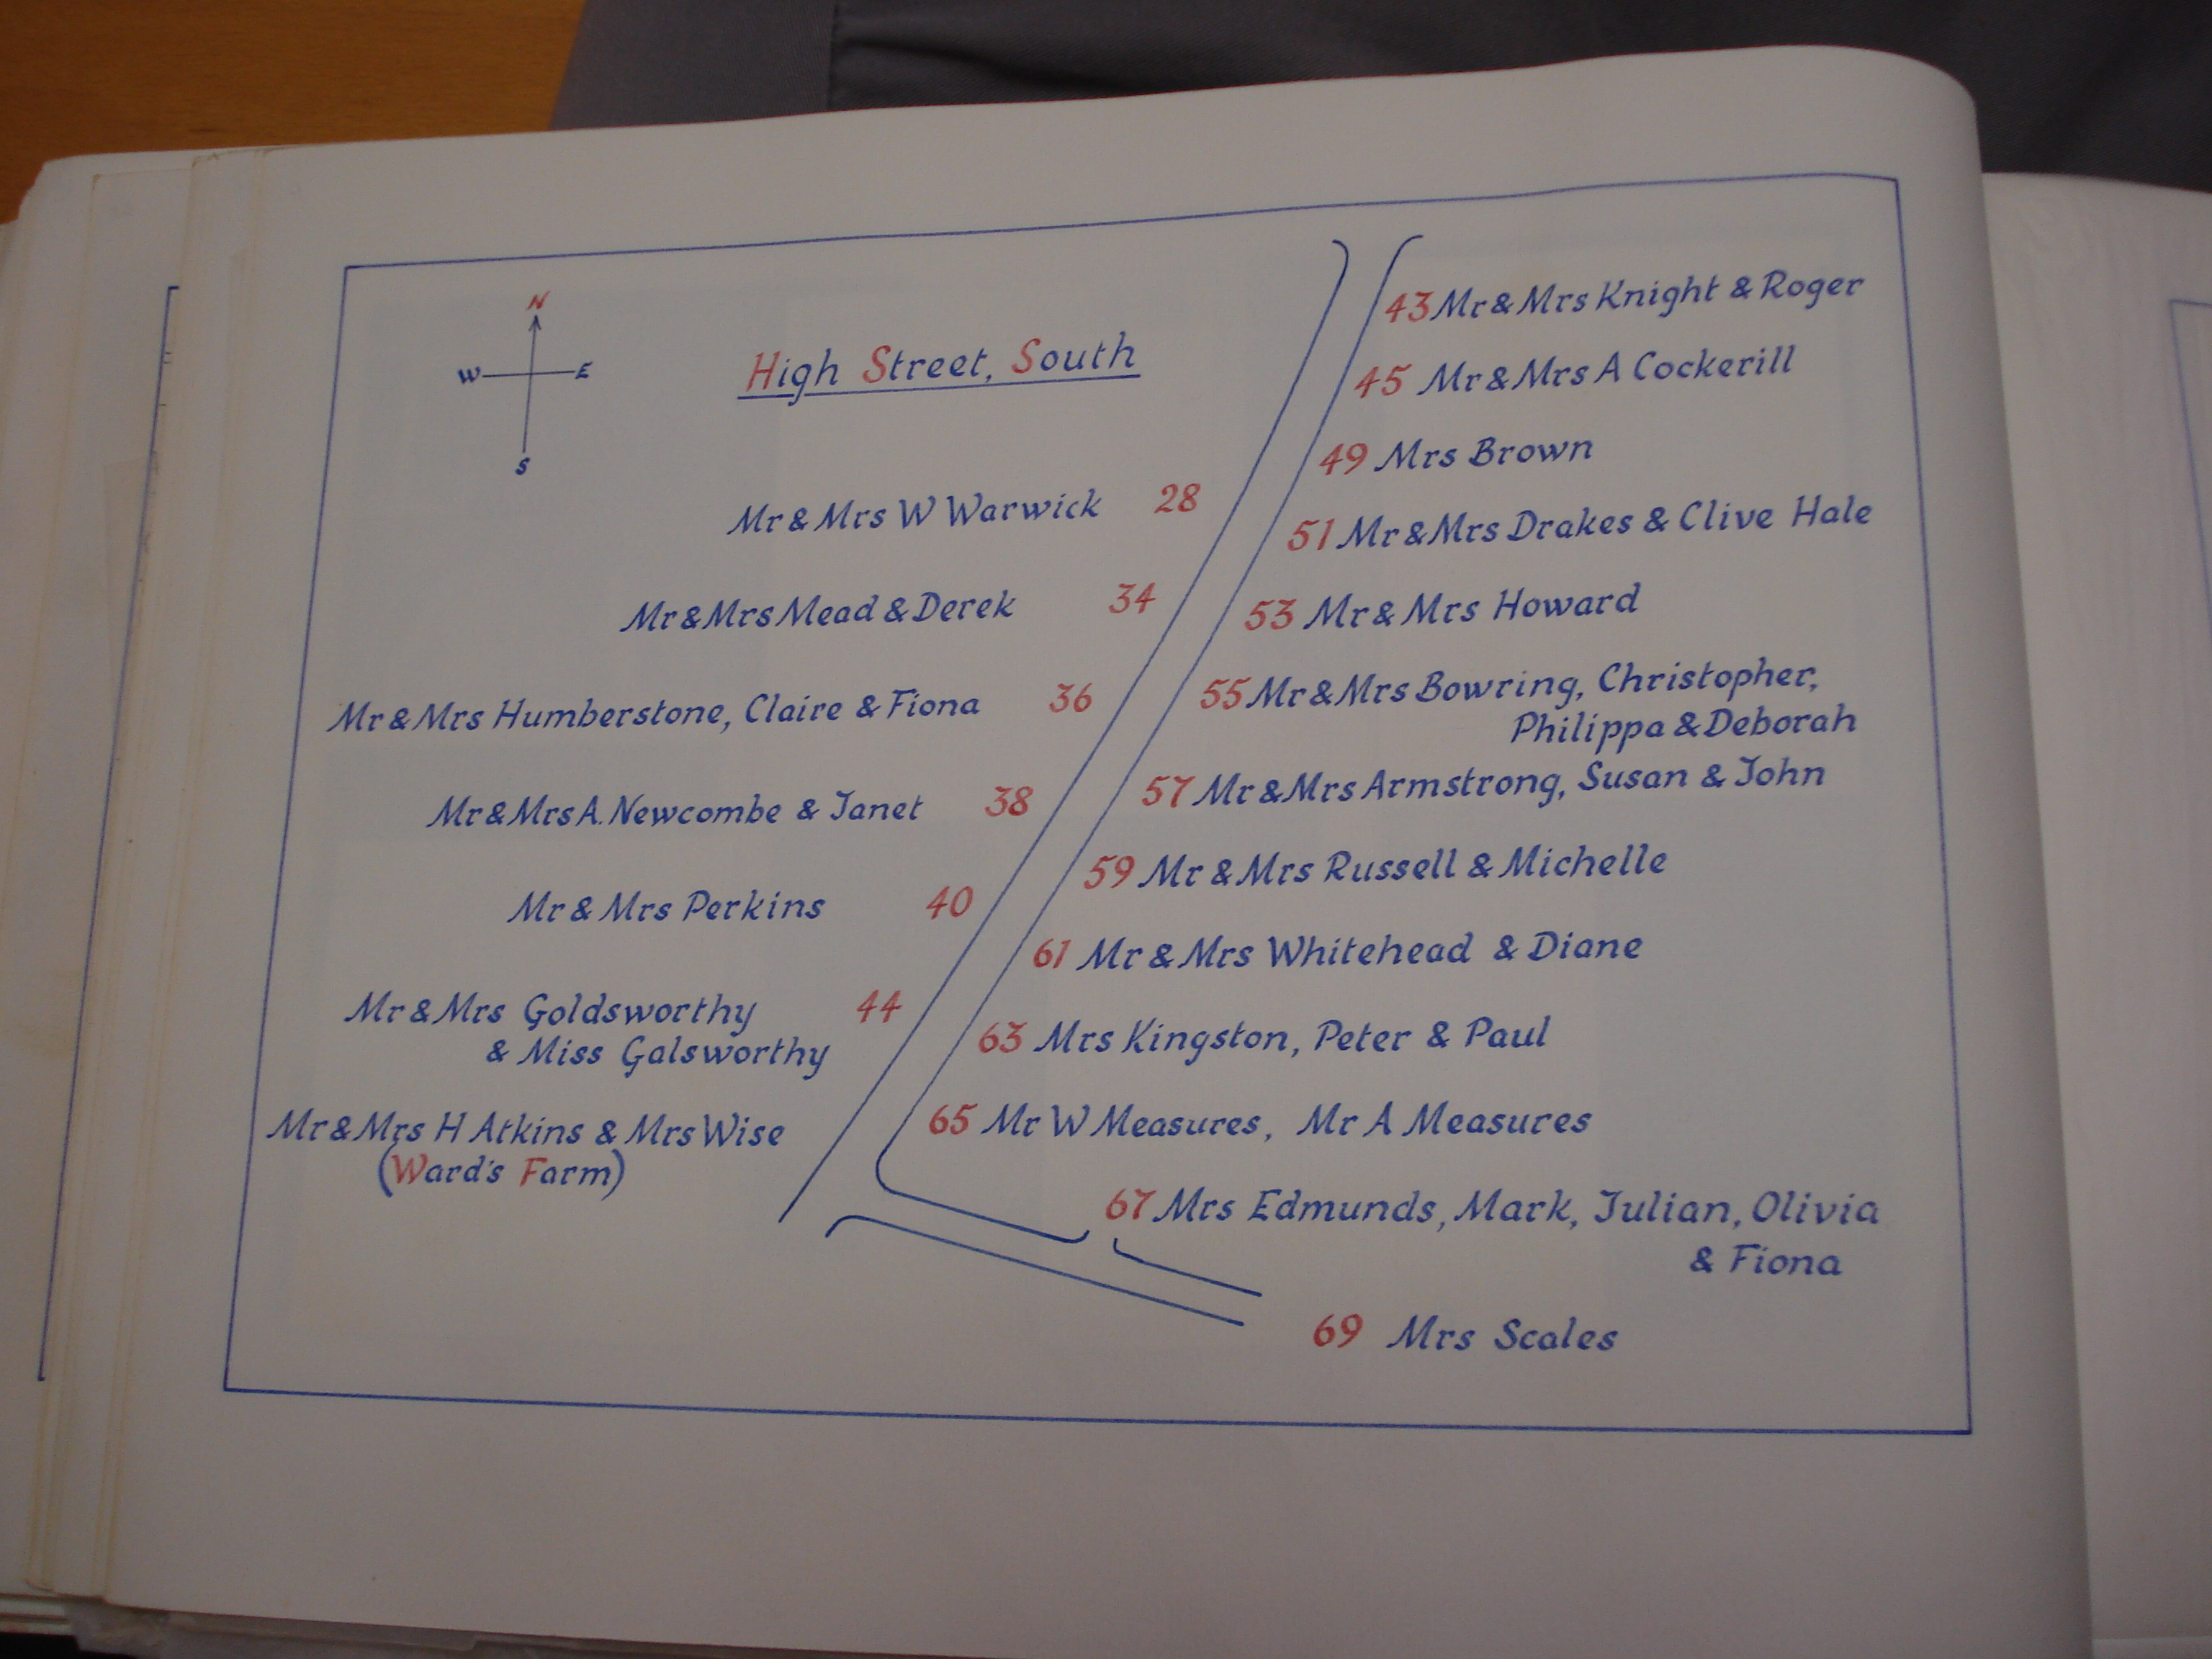 N
W E
S
High Street, South
Mr & Mrs W Warwick 28
Mr & Mrs Mead & Derek 34
Mr & Mrs Humberstone, Claire & Fiona 36
Mr & Mrs A. Newcombe & Janet 38
Mr & Mrs Perkins 40
Mr & Mrs Goldsworthy 44
& Miss Galsworthy
Mr & Mrs H Atkins & Mrs Wise
(Ward's Farm)
43 Mr & Mrs Knight & Roger
45 Mr & Mrs A Cockerill
49 Mrs Brown
51 Mr & Mrs Drakes & Clive Hale
53 Mr & Mrs Howard
55 Mr & Mrs Bowring, Christopher,
Philippa & Deborah
57 Mr & Mrs Armstrong, Susan & John
59 Mr & Mrs Russell & Michelle
61 Mr & Mrs Whitehead & Diane
63 Mrs Kingston, Peter & Paul
65 Mr W Measures, Mr A Measures
67 Mrs Edmunds, Mark, Julian, Olivia
& Fiona
69 Mrs Scales